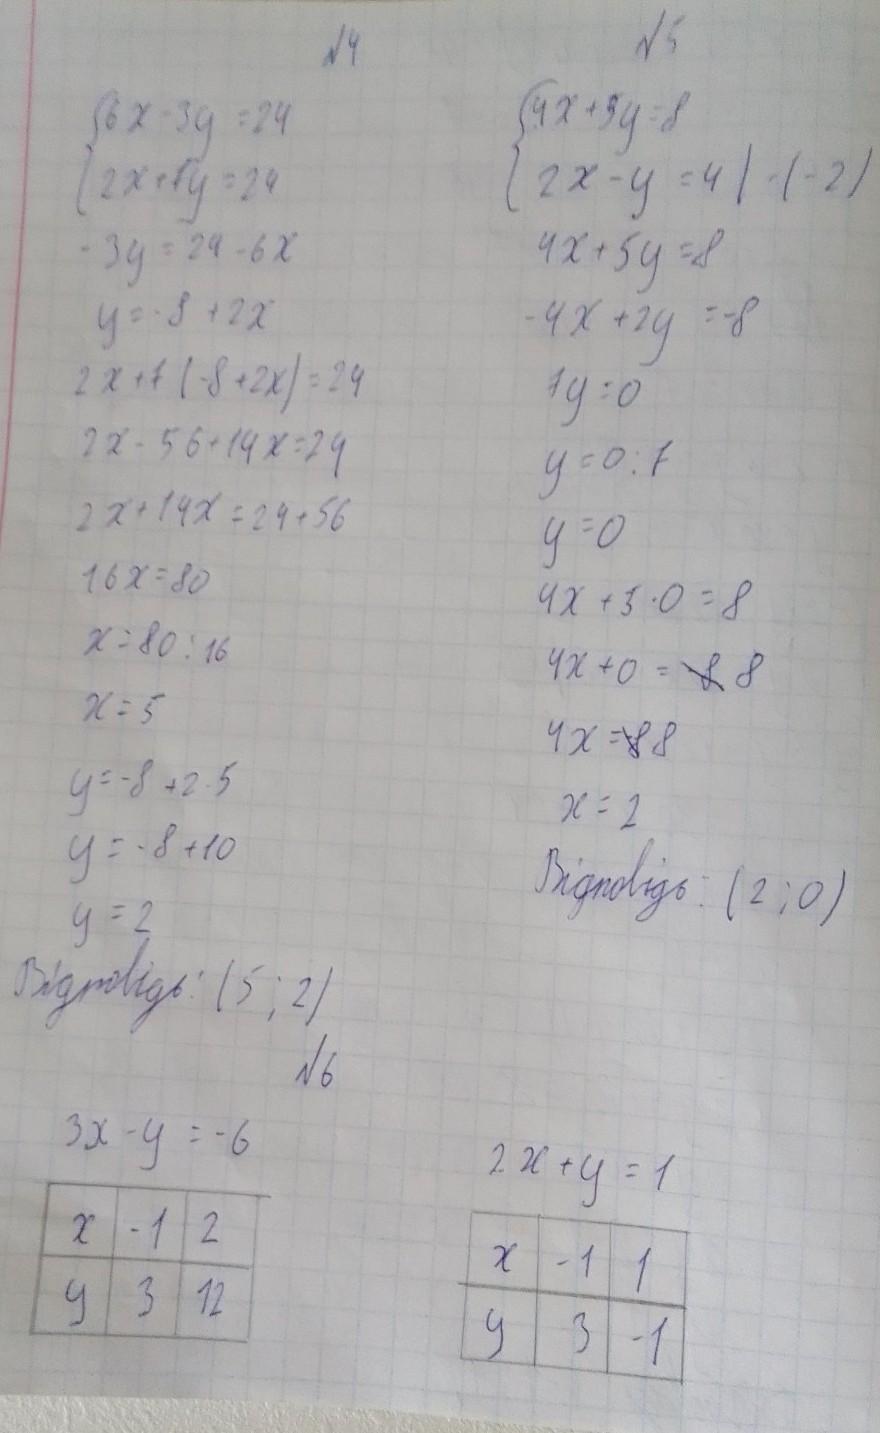 №4
{6x-3y=24
{2x+7y=24
-3y=24-6x
y=-8+2x
2x+7(-8+2x)=24
2x-56+14x=24
2x+14x=24+56
16x=80
x=80:16
x=5
y=-8+2·5
y=-8+10
y=2
Відповідь: (5;2)
№5
{4x+5y=8
{2x-y=4|·(-2)
4x+5y=8
-4x+2y=-8
7y=0
y=0:7
y=0
4x+5·0=8
4x+0=8
4x=8
x=2
Відповідь: (2;0)
№6
3x-y=-6
x -1 2
y 3 12
2x+y=1
x -1 1
y 3 -1